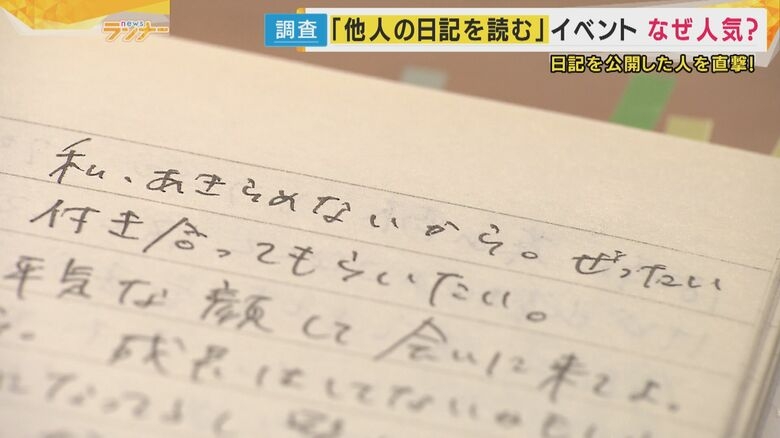 news
ランナー
調査
「他人の日記を読む」イベント なぜ人気?
日記を公開した人を直撃!
私、あきらめないから。ぜったい
付き合ってもらいたい。
平気な顔して会いに来てよ。
成長はしてないかもし
になって